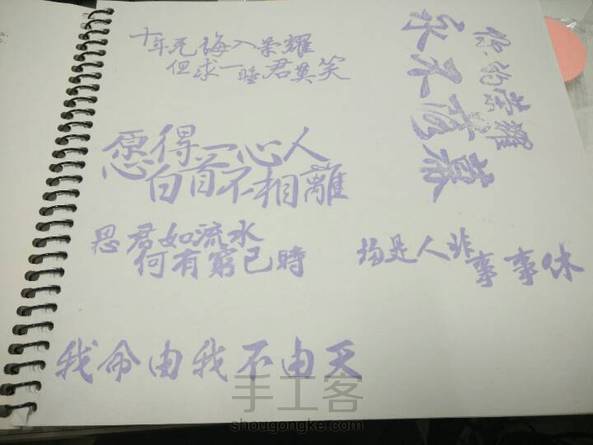 十年无悔入荣耀
但求一睡君莫笑
你的荣耀
永不落幕
愿得一心人
白首不相離
思君如流水
何有窮已時
物是人非
事事休
我命由我不由天
手工客
shougongke.com